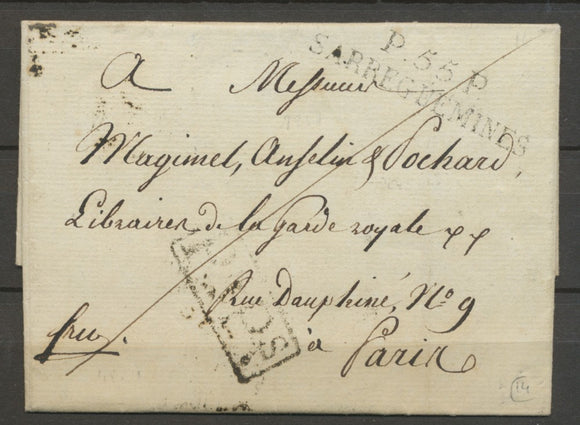 P.55.P
SARREGUEMINES
A Messieurs
Magimel, Anselin & Pochard,
Libraires de la garde royale
Rue Dauphine, No 9
à Paris
14